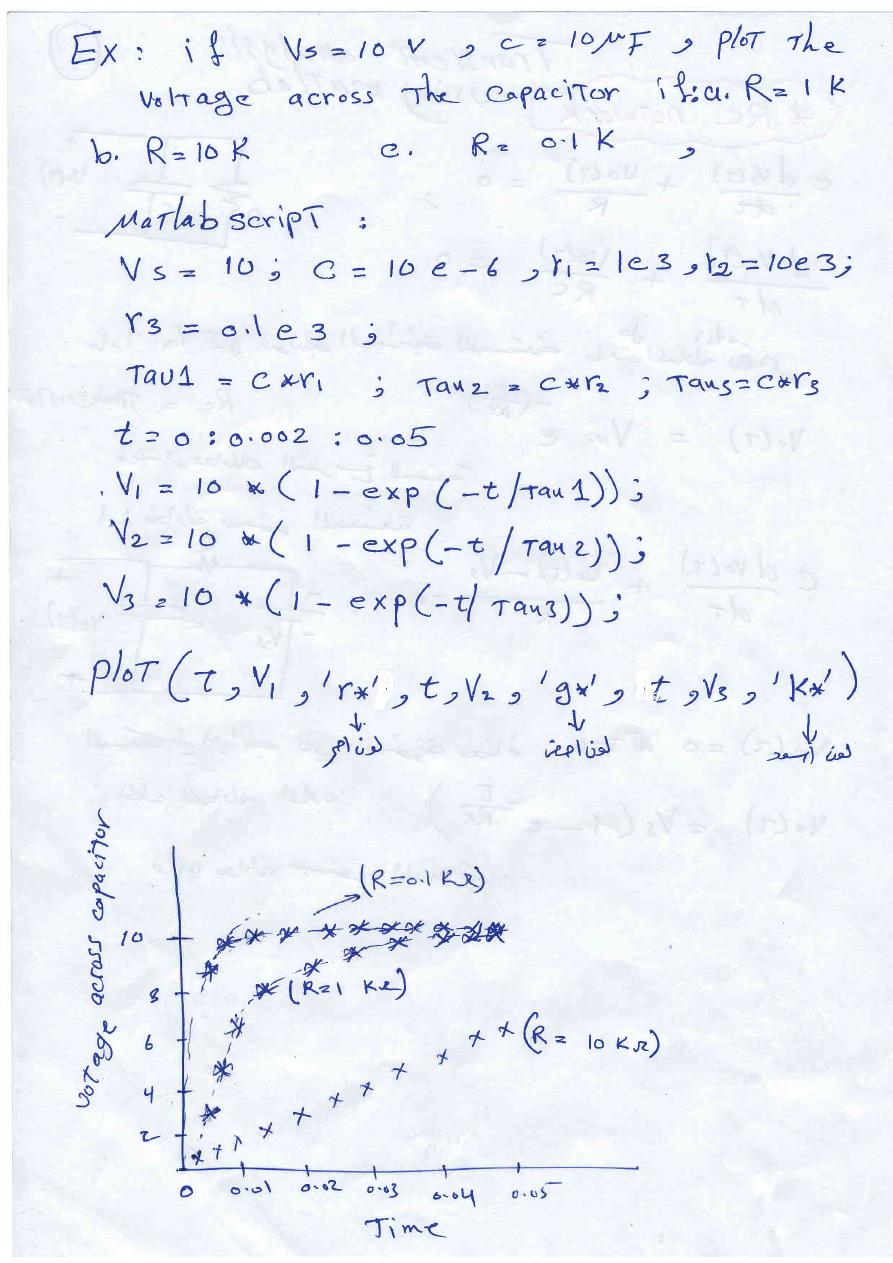 Ex : if Vs = 10 V , C = 10 μF , plot The
voltage across The capacitor if : a. R = 1 K
b. R = 10 K c. R = 0.1 K ,
Matlab script :
Vs = 10 ; C = 10 e - 6 , r1 = 1e3 , r2 = 10e3 ;
r3 = 0.1 e 3 ;
Tau1 = C*r1 ; Tau2 = C*r2 ; Tau3 = C*r3
t = 0 : 0.002 : 0.05
V1 = 10 * ( 1 - exp (-t / tau 1)) ;
V2 = 10 * ( 1 - exp (-t / Tau 2)) ;
V3 = 10 * ( 1 - exp (-t / Tau3)) ;
PLOT ( t , V1 , 'r*' , t , V2 , 'g*' , t , V3 , 'K*' )
لون احمر لون اخضر لون اسود
Voltage across capacitor
(R=0.1 KΩ)
10
8
(R=1 KΩ)
6
(R = 10 KΩ)
4
2
0 0.01 0.02 0.03 0.04 0.05
Time